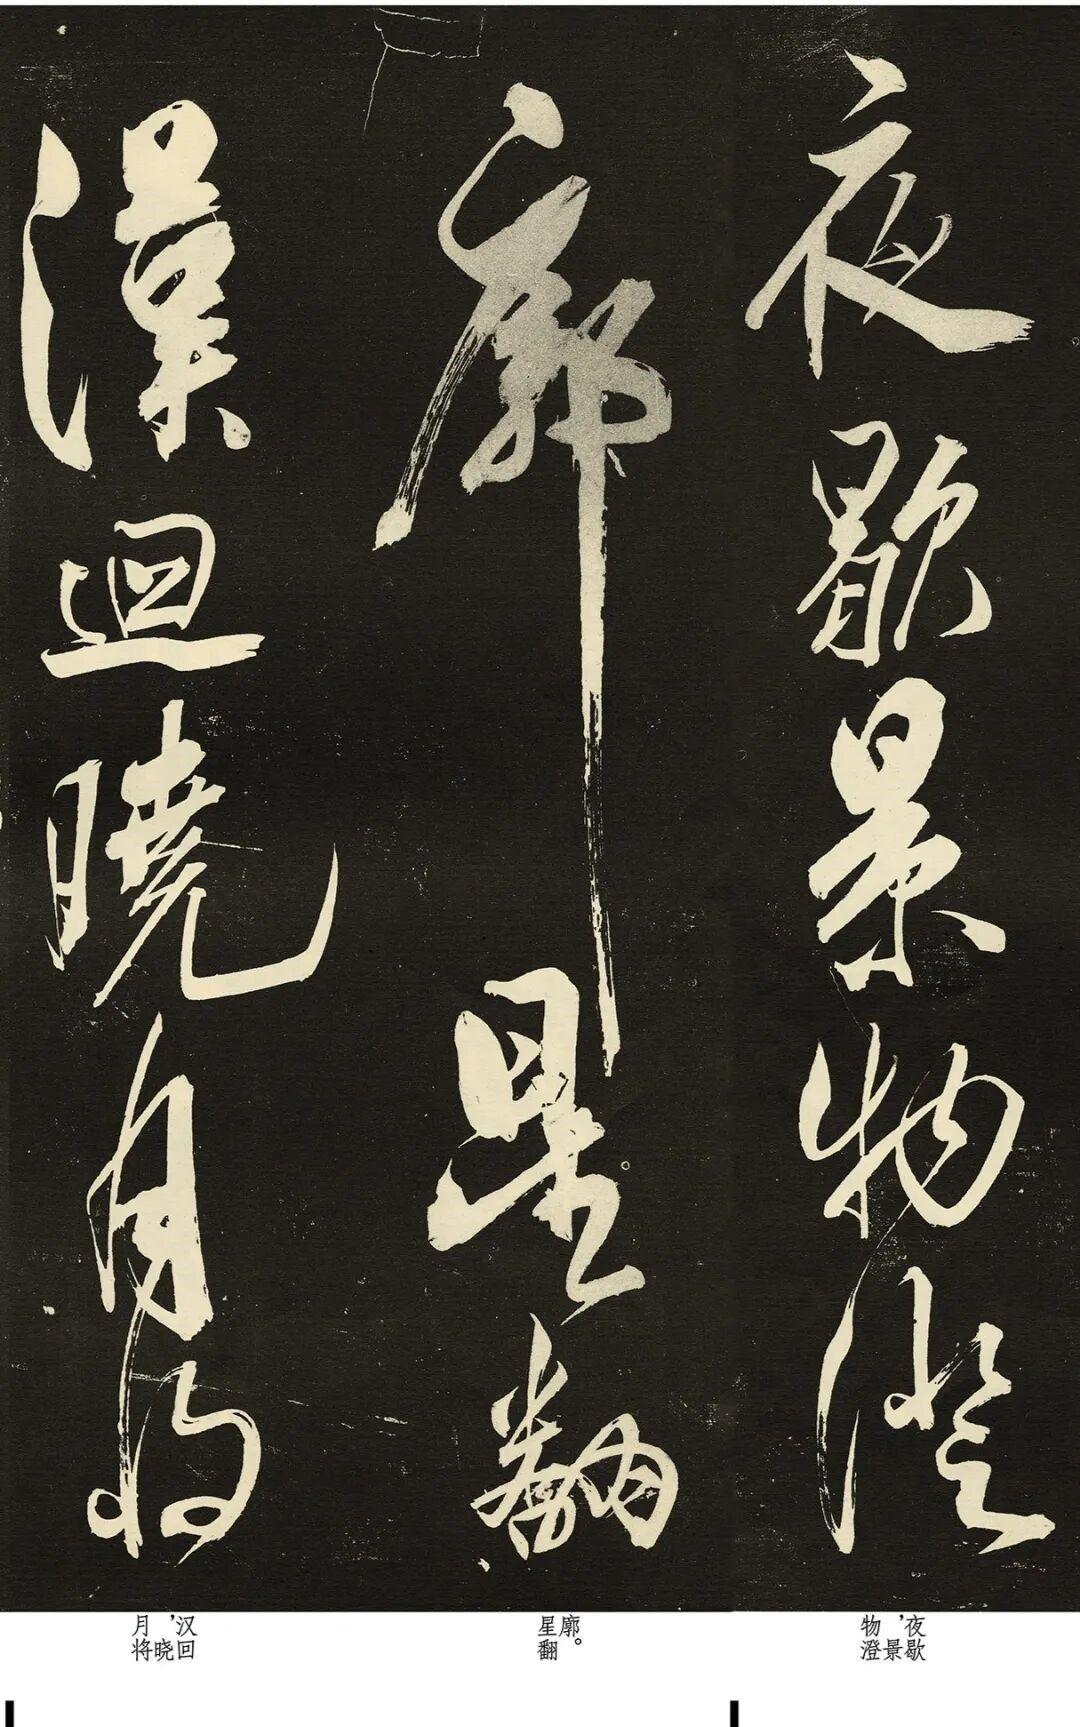 夜歇景物澄
廓星翻
漢迴曉月將
夜歇
，景
物澄
廓。
星翻
汉回
，晓
月将